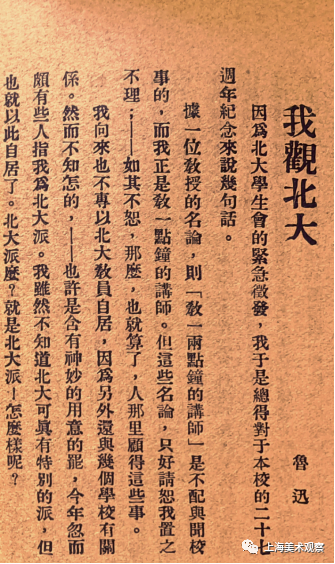 我觀北大
魯迅
因爲北大學生會的緊急徵發，我于是總得對于本校的二十七
週年紀念來說幾句話。
據一位敎授的名論，則「敎一兩點鐘的講師」是不配與聞校
事的，而我正是敎一點鐘的講師。但這些名論，只好請恕我置之
不理；——如其不恕，那麼，也就算了，人那里顧得這些事。
我向來也不專以北大敎員自居，因爲另外還與幾個學校有關
係。然而不知怎的，——也許是含有神妙的用意的罷，今年忽而
頗有些人指我爲北大派。我雖然不知道北大可眞有特別的派，但
也就以此自居了。北大派麼？就是北大派！怎麼樣呢？
上海美术观察